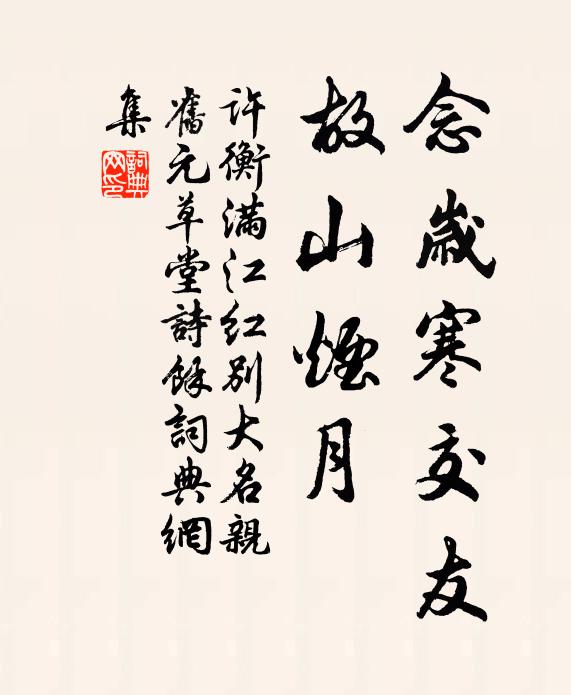 念歲寒交友
故山煙月
許衡滿江紅別大名親
舊元草堂詩餘詞典網
集
詞典網印